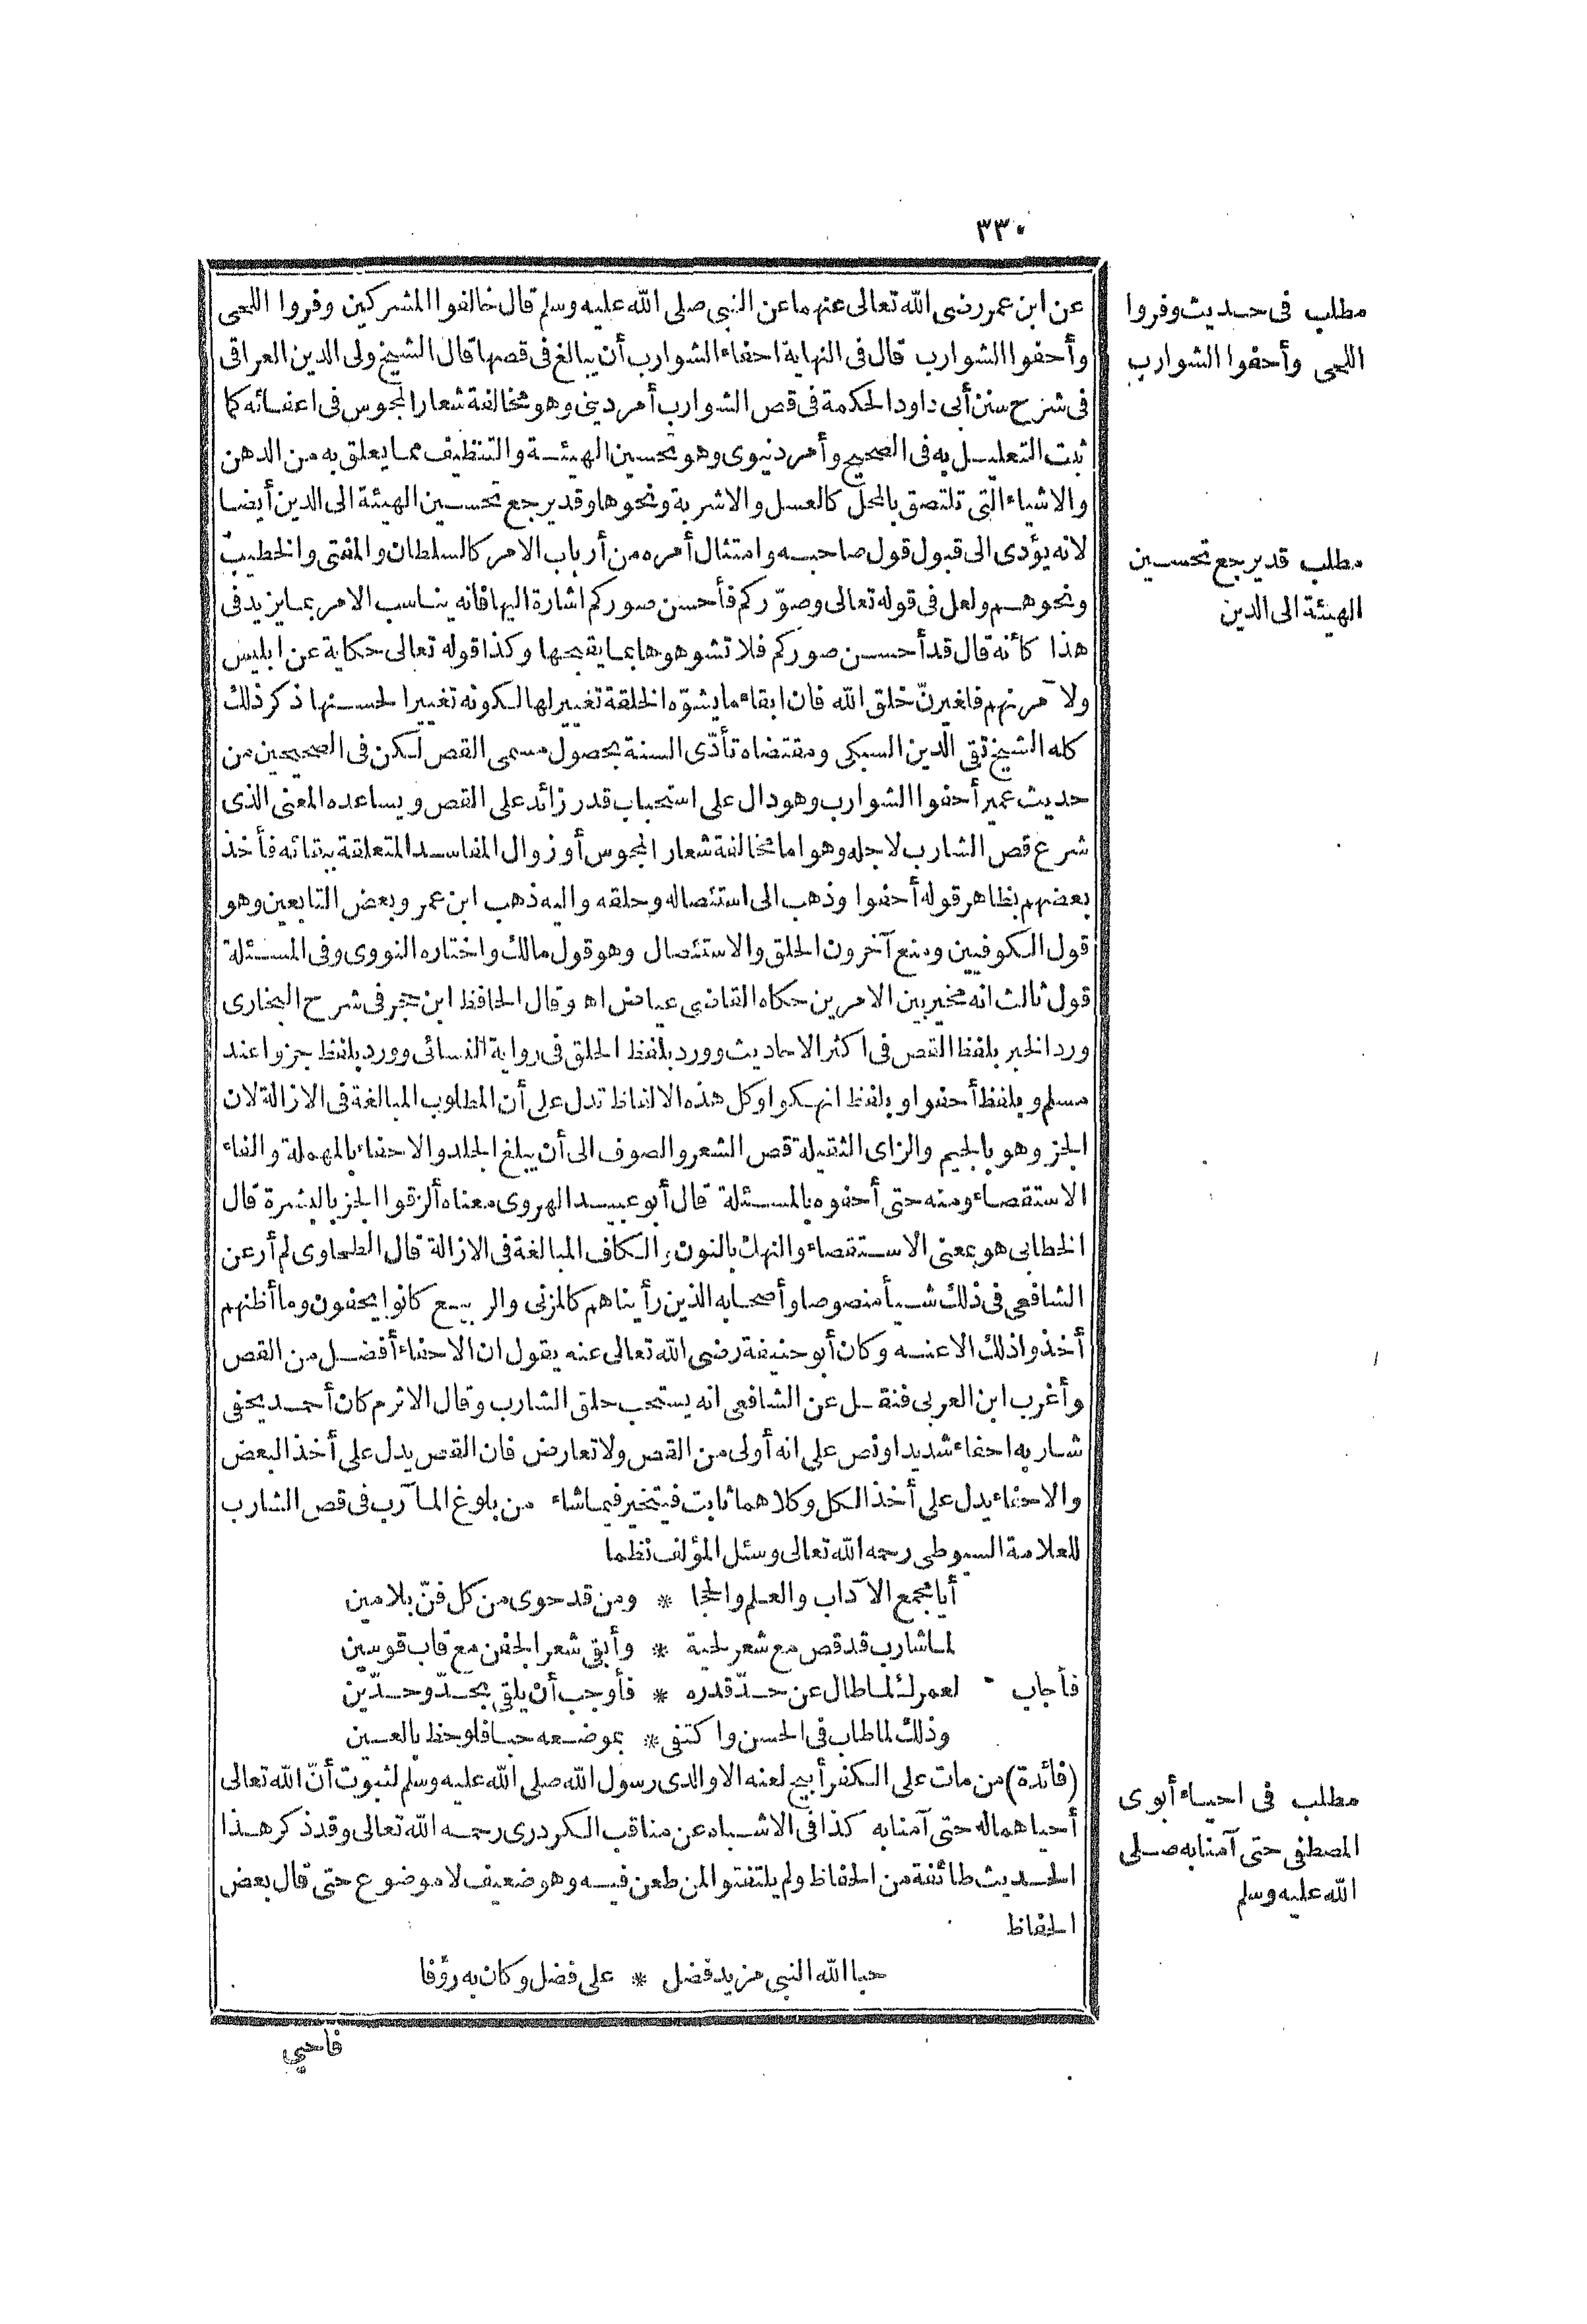 ٣٣٠
عن ابن عمر رضى الله تعالى عنهما عن النبى صلى الله عليه وسلم قال خالفوا المشركين وفروا اللحى
وأحفوا الشوارب قال فى النهاية احفاء الشوارب أن يبالغ فى قصها قال الشيخ ولى الدين العراقى
فى شرح سنن أبى داود الحكمة فى قص الشوارب أمر دينى وهو مخالفة شعار المجوس فى اعفائه كما
ثبت التعليل به فى الصحيح وأمر دنيوى وهو تحسين الهيئة والتنظيف مما يعلق به من الدهن
والاشياء التى تلتصق بالمحل كالعسل والاشربة ونحوها وقد يرجع تحسين الهيئة الى الدين أيضا
لانه يؤدى الى قبول قول صاحبه وامتثال أمره من أرباب الامر كالسلطان والمفتى والخطيب
ونحوهم ولعل فى قوله تعالى وصوّركم فأحسن صوركم اشارة اليها فانه يناسب الامر بما يزيد فى
هذا كأنه قال قد أحسن صوركم فلا تشوهوها بما يقبحها وكذا قوله تعالى حكاية عن ابليس
ولآمرنهم فليغيرنّ خلق الله فان ابقاء ما يشوّه الخلقة تغيير لها لكونه تغييرا لحسنها ذكر ذلك
كله الشيخ تقى الدين السبكى ومقتضاه تأدّى السنة بحصول مسمى القص لكن فى الصحيحين من
حديث عمير أحفوا الشوارب وهو دال على استحباب قدر زائد على القص ويساعده المعنى الذى
شرع قص الشارب لاجله وهو اما مخالفة شعار المجوس أو زوال المفاسد المتعلقة ببقائه فأخذ
بعضهم بظاهر قوله أحفوا وذهب الى استئصاله وحلقه واليه ذهب ابن عمر وبعض التابعين وهو
قول الكوفيين ومنع آخرون الحلق والاستئصال وهو قول مالك واختاره النووى وفى المسئلة
قول ثالث انه مخير بين الامرين حكاه القاضى عياض اه وقال الحافظ ابن حجر فى شرح البخارى
ورد الخبر بلفظ القص فى اكثر الاحاديث وورد بلفظ الحلق فى رواية النسائى وورد بلفظ جزوا عند
مسلم وبلفظ أحفوا وبلفظ انهكوا وكل هذه الالفاظ تدل على أن المطلوب المبالغة فى الازالة لان
الجز وهو بالجيم والزاى الثقيلة قص الشعر والصوف الى أن يبلغ الجلد والاحفاء بالمهملة والفاء
الاستقصاء ومنه حتى أحفوه بالمسئلة قال أبو عبيد الهروى معناه ألزقوا الجز بالبشرة قال
الخطابى هو بمعنى الاستقصاء والنهك بالنون والكاف المبالغة فى الازالة قال الطحاوى لم أر عن
الشافعى فى ذلك شيأ منصوصا وأصحابه الذين رأيناهم كالمزنى والربيع كانوا يحفون وما أظنهم
أخذوا ذلك الا عنه وكان أبو حنيفة رضى الله تعالى عنه يقول ان الاحفاء أفضل من القص
وأغرب ابن العربى فنقل عن الشافعى انه يستحب حلق الشارب وقال الاثرم كان أحمد يحفى
شاربه احفاء شديدا ونص على انه أولى من القص ولا تعارض فان القص يدل على أخذ البعض
والاحفاء يدل على أخذ الكل وكلاهما ثابت فيتخير فيما شاء من بلوغ المآرب فى قص الشارب
للعلامة السيوطى رحمه الله تعالى وسئل المؤلف نظما
أيا مجمع الآداب والعلم والحجا * ومن قد حوى من كل فنّ بلا مين
لما شارب قد قص مع شعر لحية * وأبقى شعر الجفن مع قاب قوسين
فأجاب لعمرك لما طال عن حدّ قدره * فأوجب أن يلقى بحدّ وحدّين
وذلك لما طاب فى الحسن واكتفى * بموضعه حبا فلوحظ بالعين
(فائدة) من مات على الكفر أبيح لعنه الا والدى رسول الله صلى الله عليه وسلم لثبوت أنّ الله تعالى
أحياهما له حتى آمنا به كذا فى الاشباه عن مناقب الكردرى رحمه الله تعالى وقد ذكر هذا
الحديث طائفة من الحفاظ ولم يلتفتوا لمن طعن فيه وهو ضعيف لا موضوع حتى قال بعض
الحفاظ
حبا الله النبى مزيد فضل * على فضل وكان به رؤفا
فاحيى
مطلب فى حديث وفروا
اللحى وأحفوا الشوارب
مطلب قد يرجع تحسين
الهيئة الى الدين
مطلب فى احياء أبوى
المصطفى حتى آمنا به صلى
الله عليه وسلم